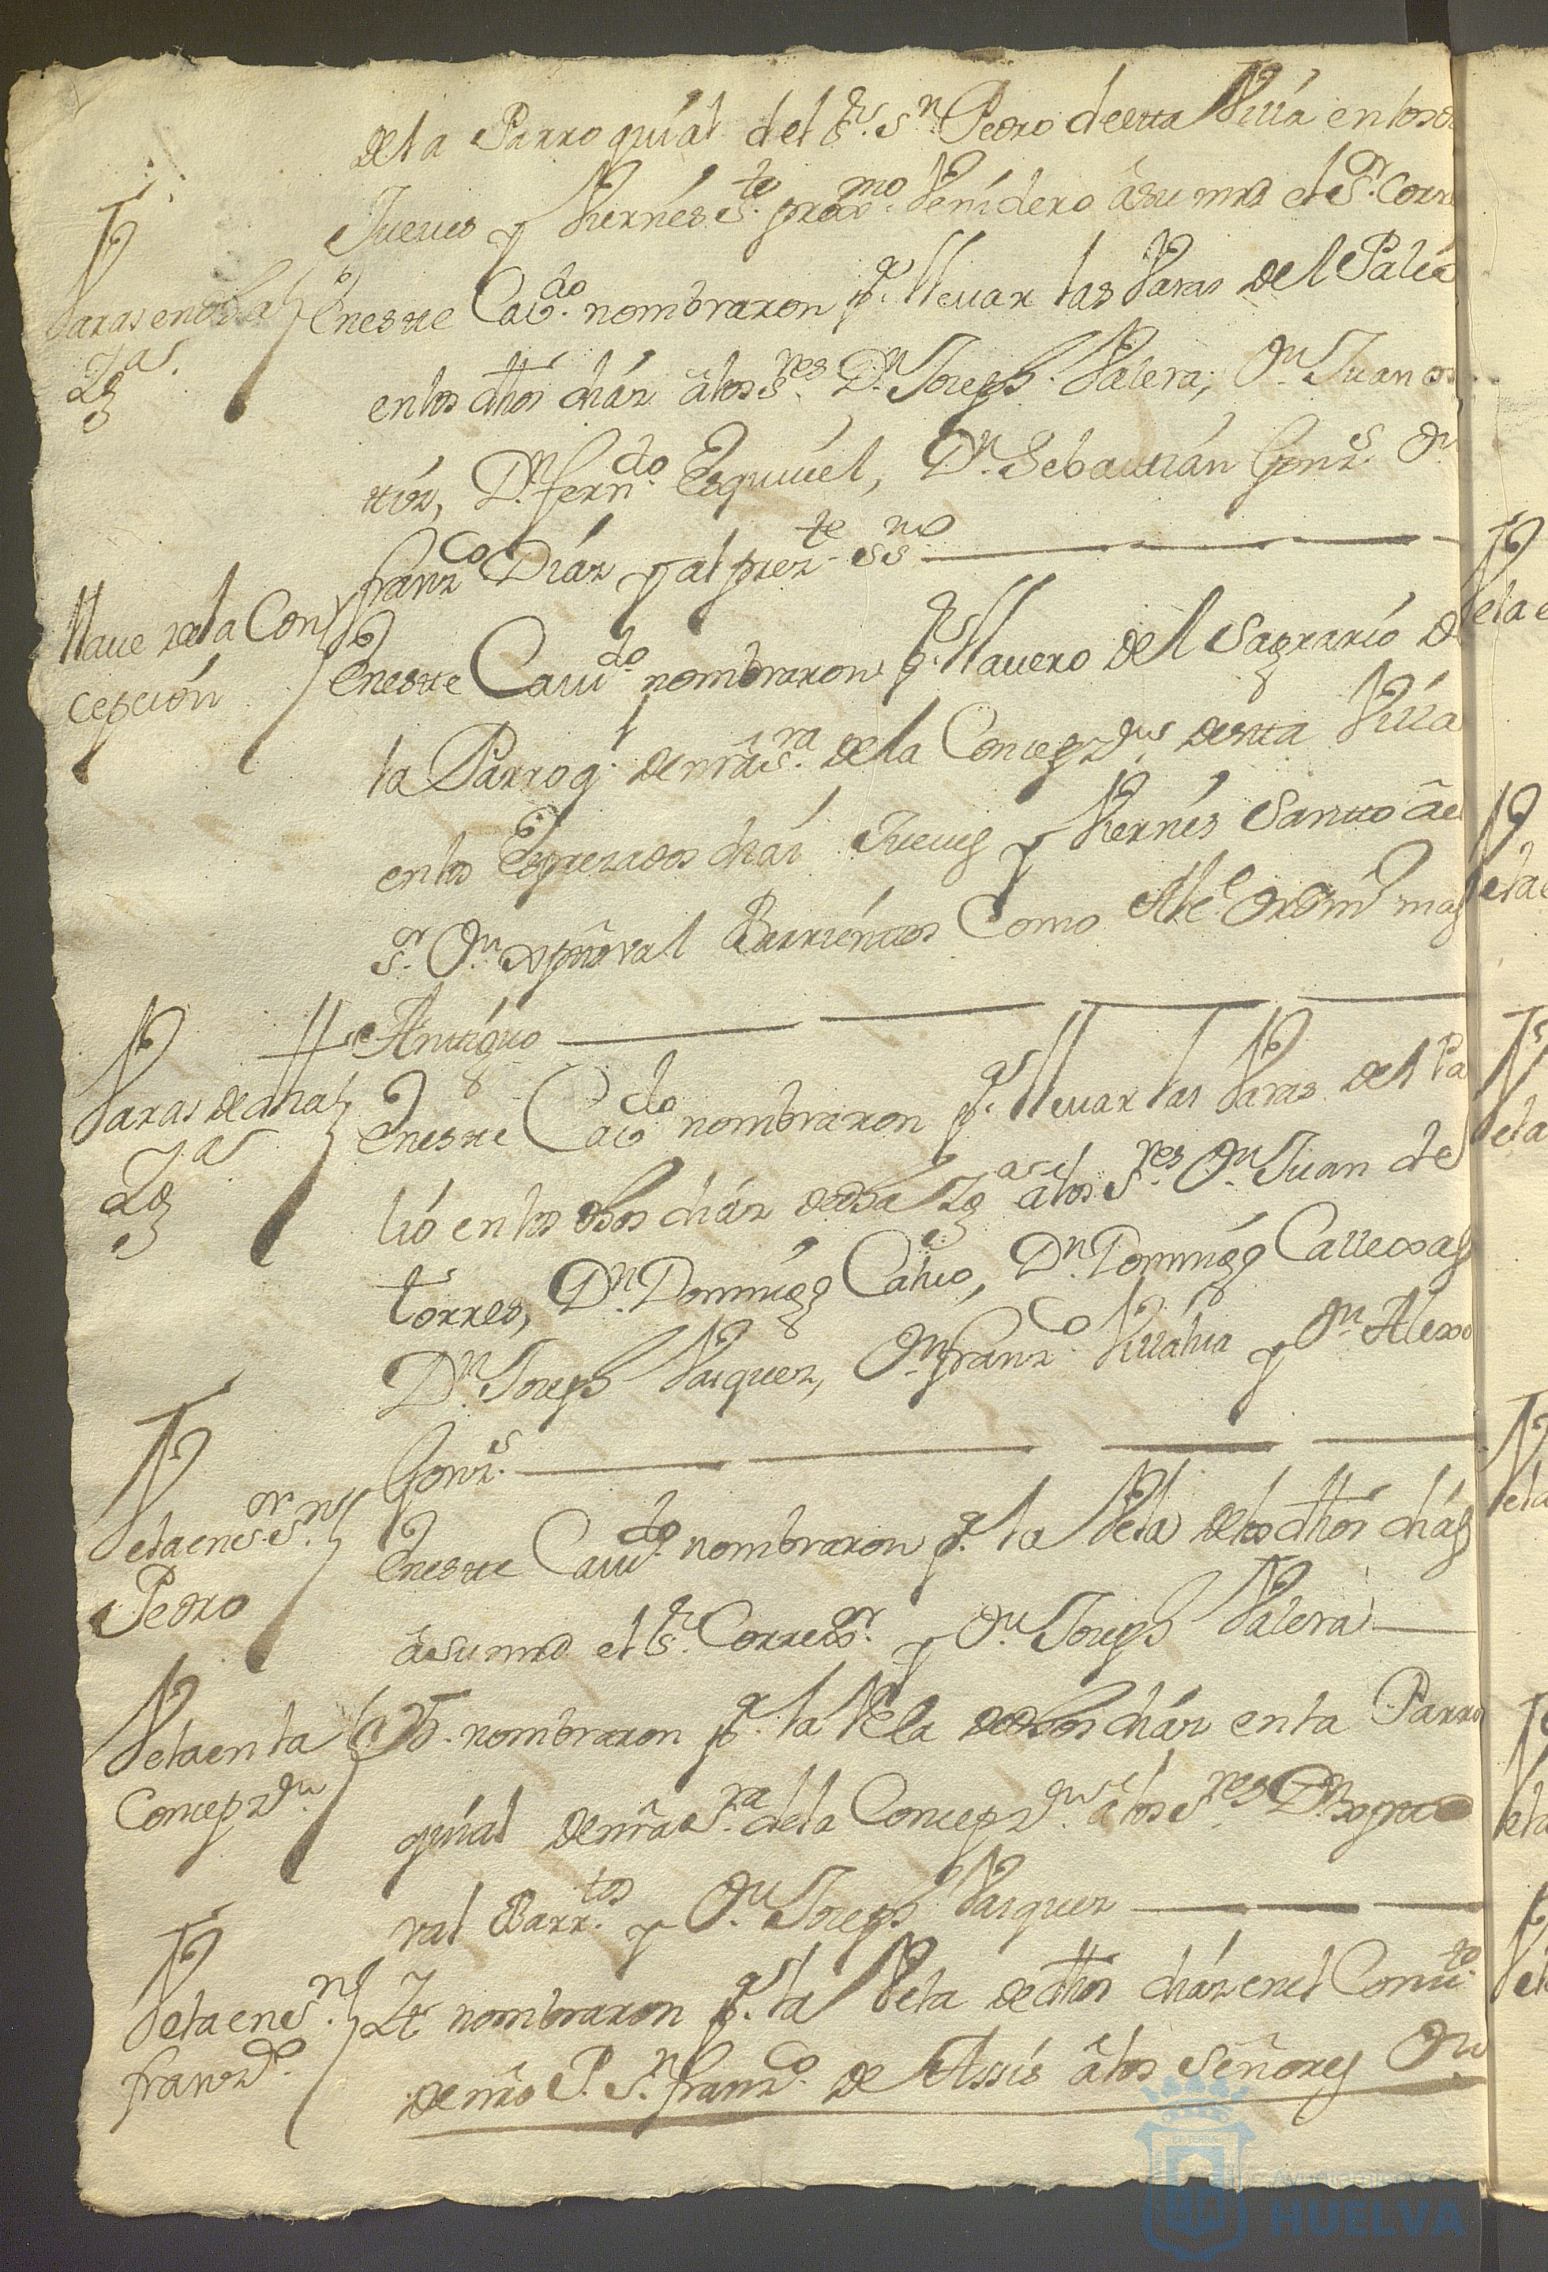 de la Parroquial del Sr. Sn. Pedro de esta Villa en los
Jueves y Viernes Sto. proxmo. Venidero â su mrd el Sr. Corr
Varas en dha
Ygas.
En este Cavdo. nombraron pa. llevar las Varas del Palio
en los dhos dias â los Sres. Dn. Joseph Valera, Dn. Juan
Dn. Ferndo. Esquivel, Dn. Sebastian Gonzs. Dn
Franco Diaz y al preste. ssno
llave de la Con
cepcion
En este Cavido. nombraron pr. llavero del Sagrario de
la Parroql. de nra Sra. de la Concepzon. desta Villa
en los Espresados dias Jueves y Viernes Santto âl
Sr. Dn. Xptoval Barrientos Como Alce. Ordino mas
Antiguo
Varas de dha
Ygas.
En este Cavdo nombraron pa. llevar las Varas del Pa
lio en los dhos dias de dha Yga. â los Sres. Dn. Juan de
torres, Dn. Domingo Calvo, Dn. Domingo Callexas
Dn. Joseph Vasquez, Dn. Franco. Villalva y Dn. Alexo
Gonzs.
Vela en el Sor. Sn.
Pedro
En este Cavdo. nombraron pa. la Vela de los dhos dias
â su mrd el Sr. Corredor. y Dn. Joseph Valera
Vela en la
Concepzon.
Yd. nombraron pa. la Vela de dhos dias en la Parro
quial de nra Sra. de la Concepzon. â los Sres. Dn.
val Barrtos. y Dn. Joseph Vasquez
Vela en Sn.
Franzco.
Yt nombraron pa. la Vela de dhos dias en el Convto.
de nro P. Sn. Franzco. de Assis â los Señores Dn
Ayuntamiento de
HUELVA